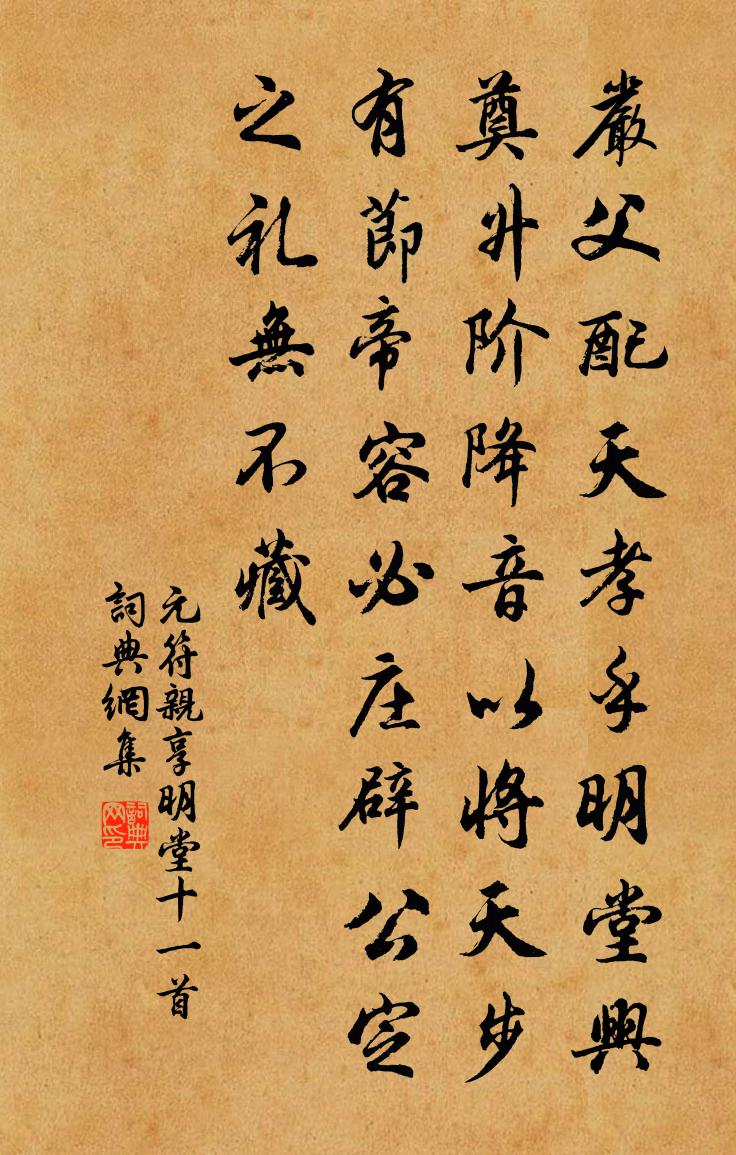 嚴父配天孝乎明堂興
奠升阶降音以將天步
有節帝容必庄辟公定
之礼無不藏
元符親享明堂十一首
詞典網集
詞典网印